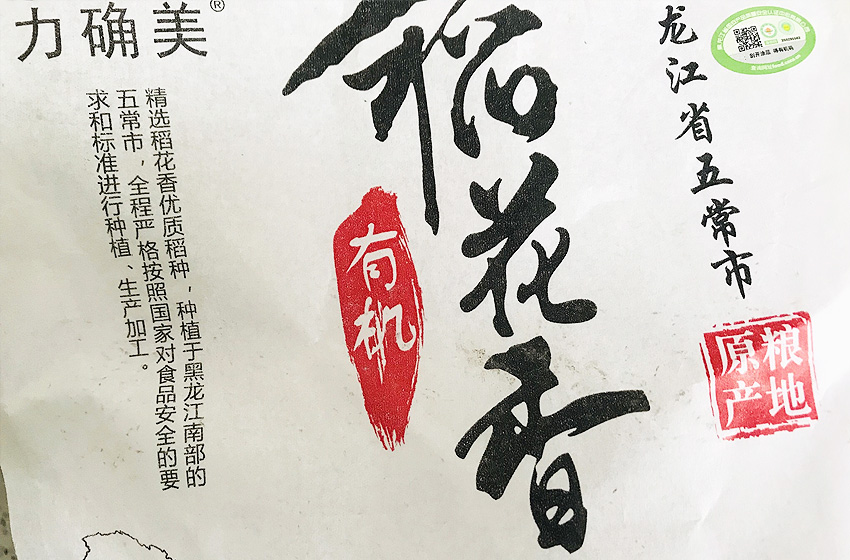 力确美®
稻花香
有机
龙江省五常市
原粮
产地
精选稻花香优质稻种，种植于黑龙江南部的
五常市，全程严格按照国家对食品安全的要
求和标准进行种植、生产加工。